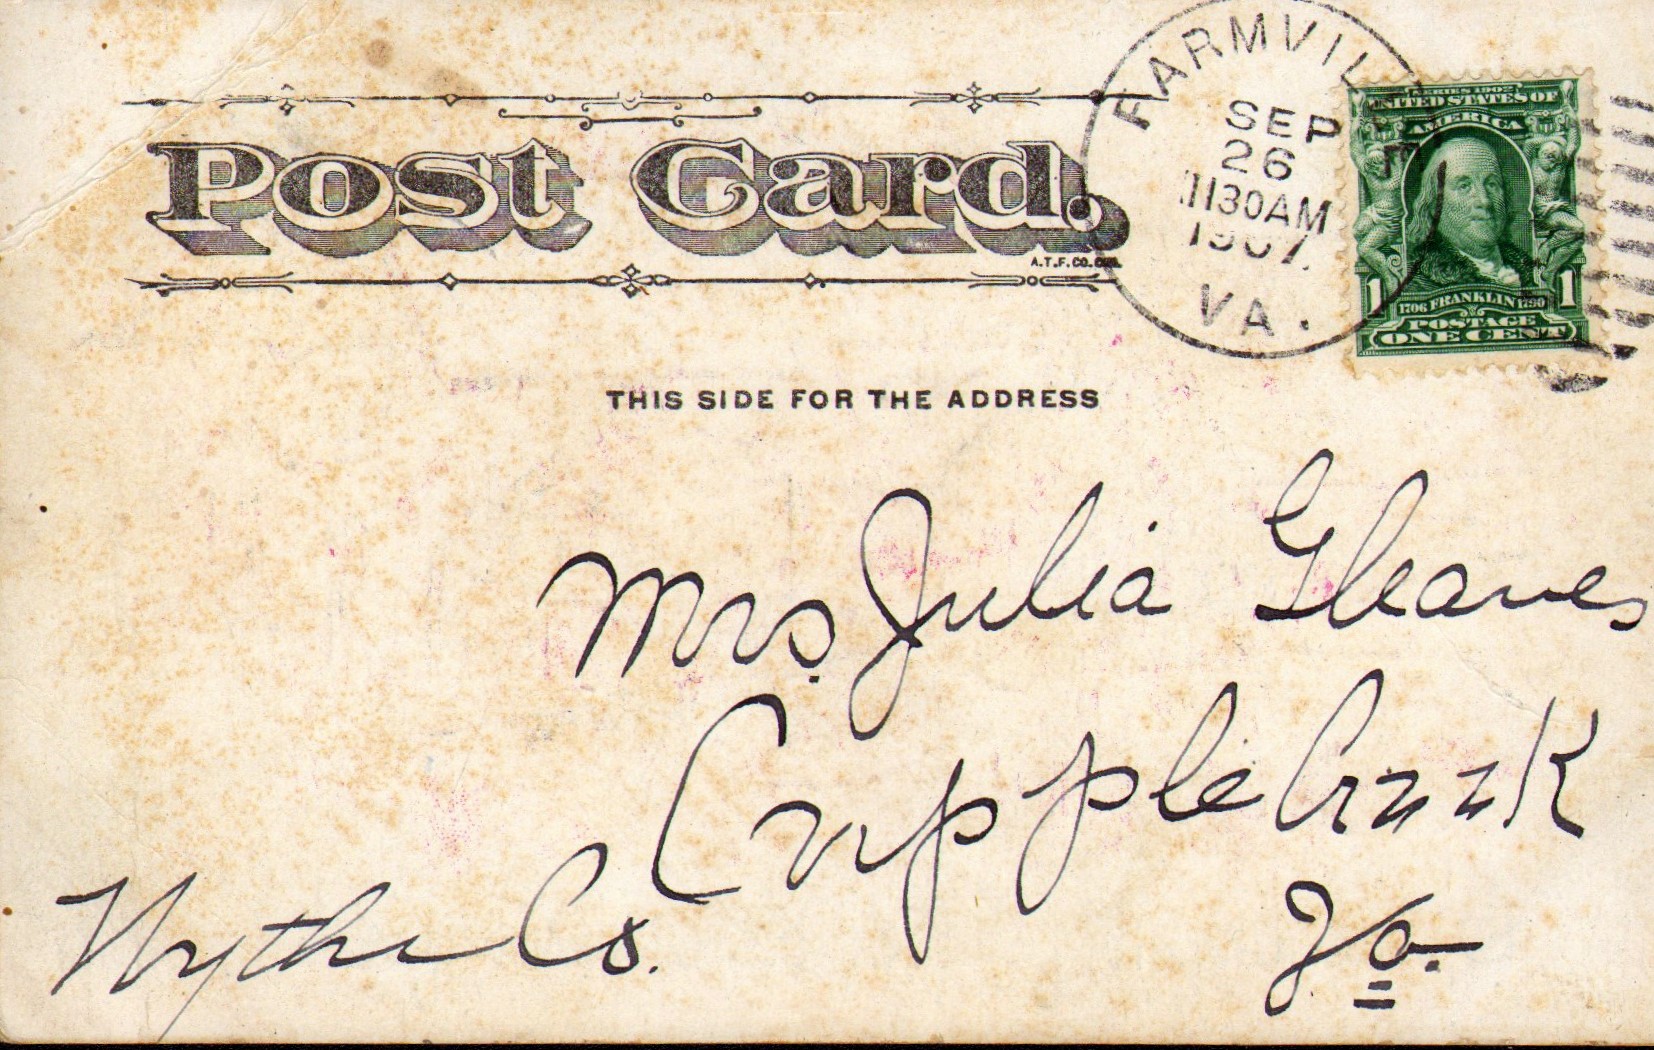 Post Card.
A.T.F.CO.
FARMVILLE
SEP
26
1130AM
1907.
VA.
SERIES 1902
UNITED STATES OF
AMERICA
1 1
1706 FRANKLIN 1790
POSTAGE
ONE CENT
THIS SIDE FOR THE ADDRESS
Mrs. Julia Gleaves
Cripple Creek
Wythe Co.
Va.